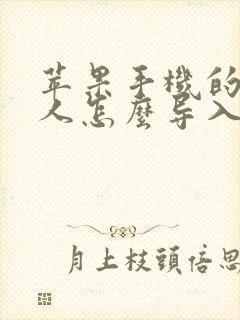 苹果手機的
人怎麽导入
月上枝頭倍思